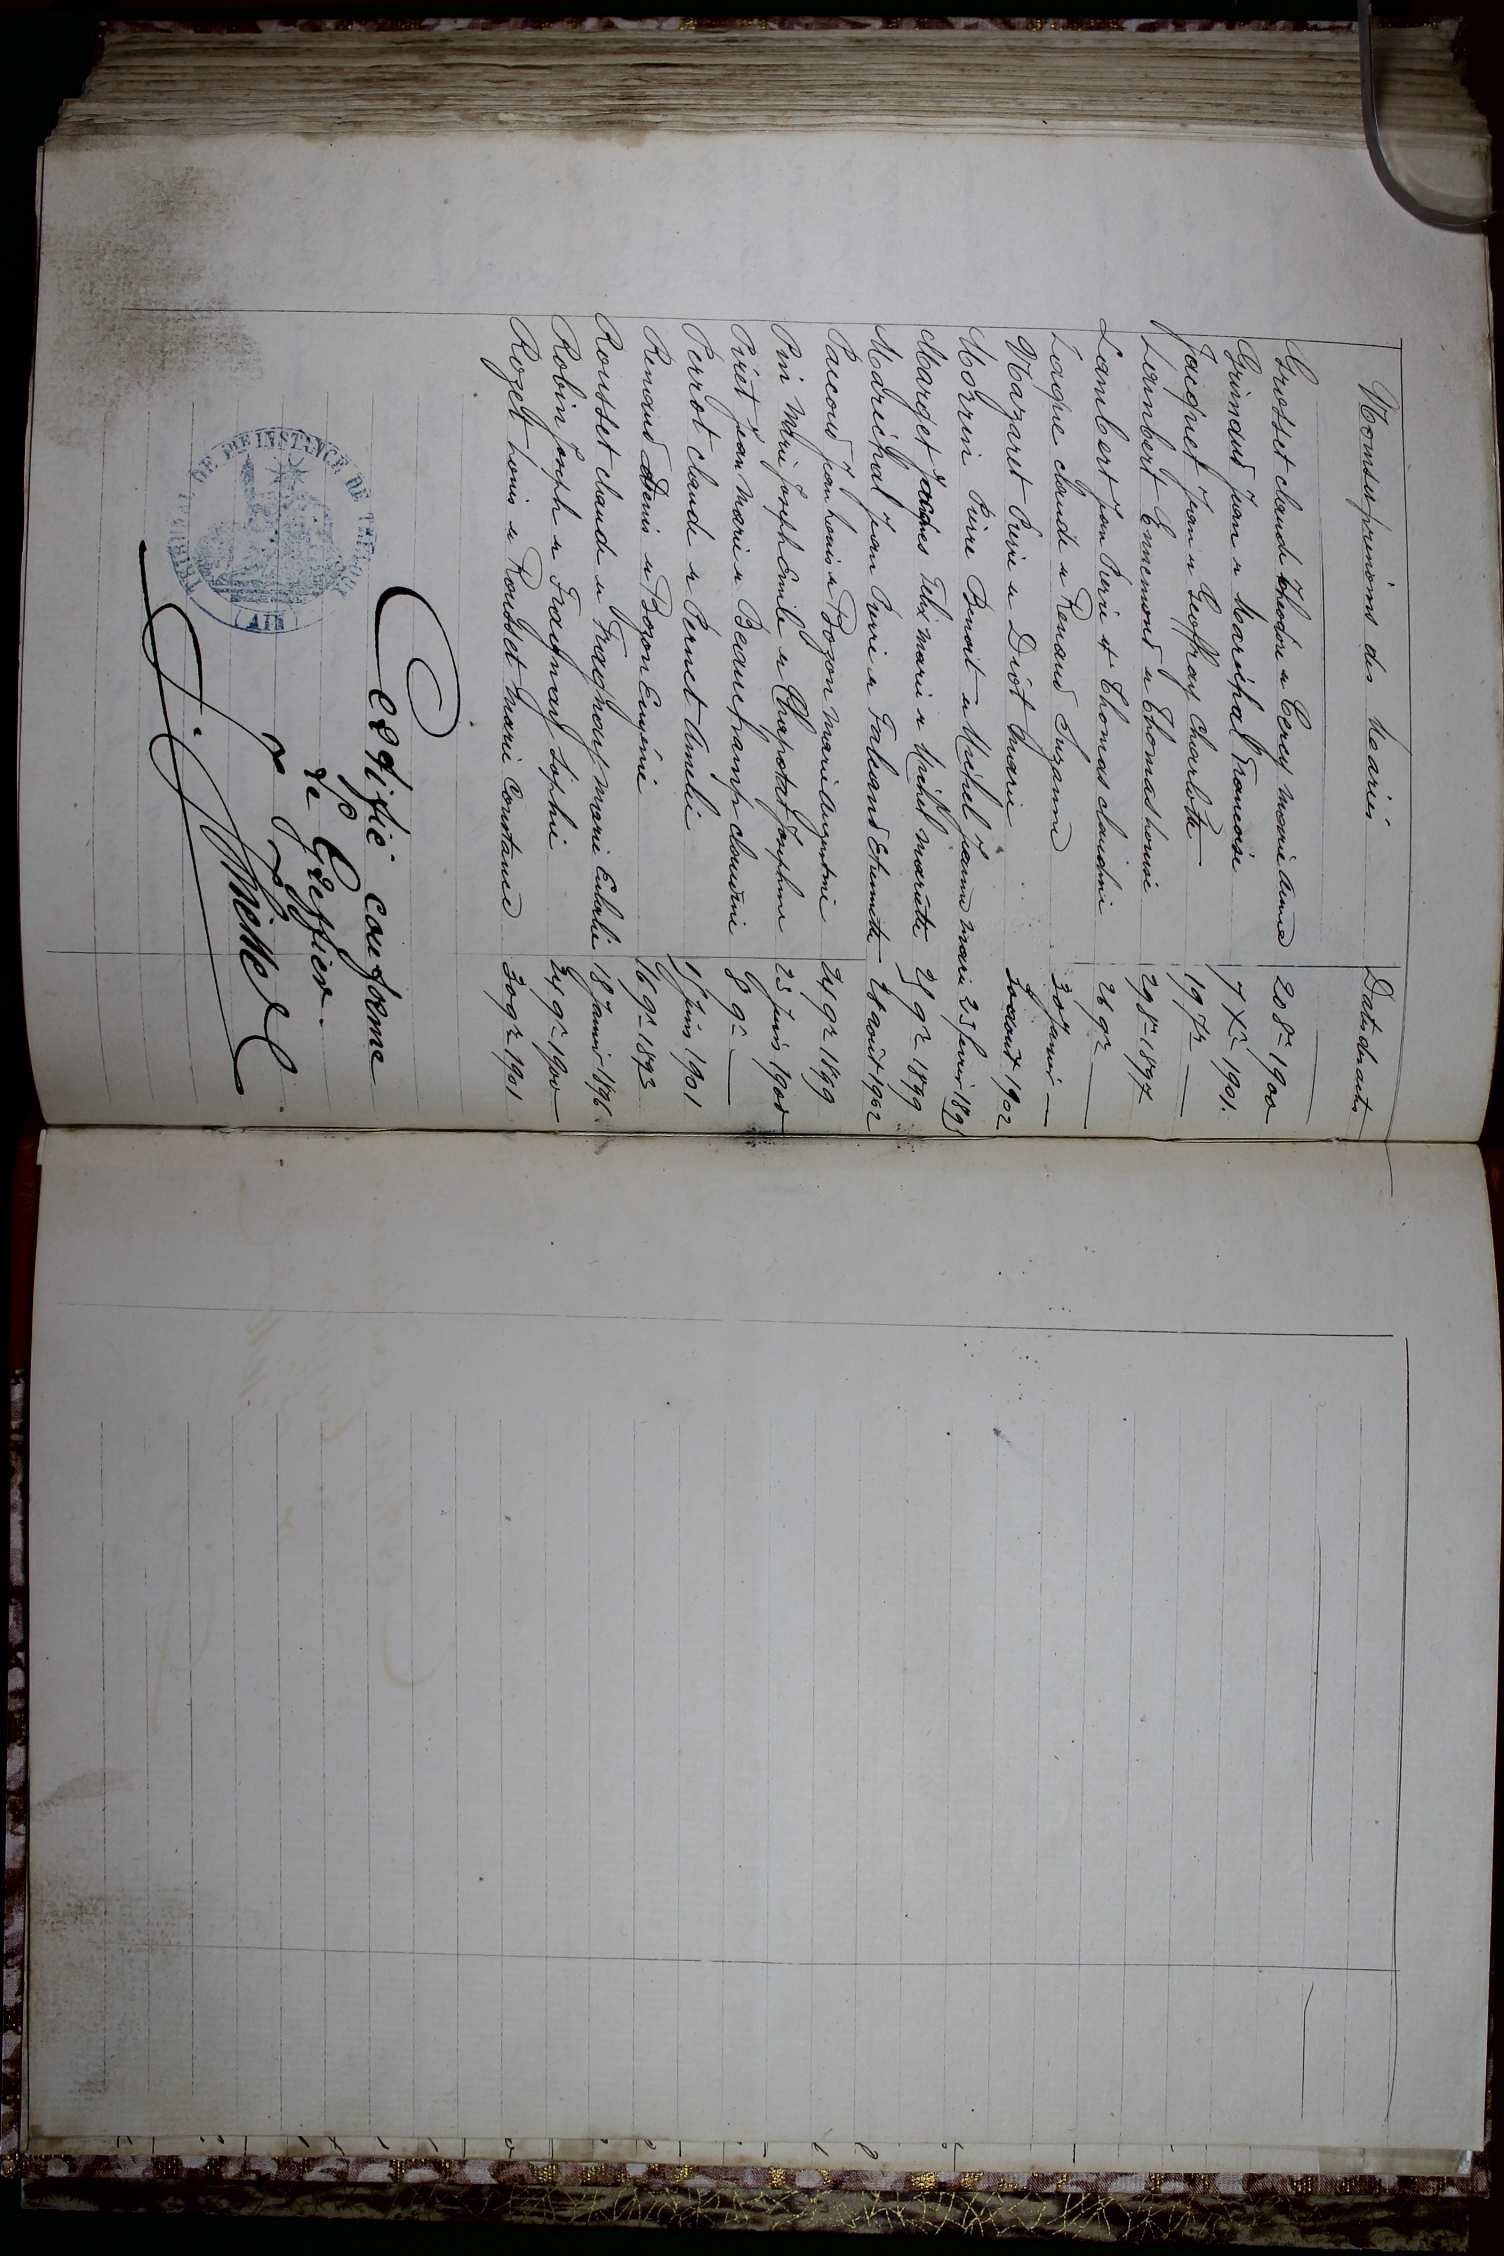 Noms et prénoms des Mariés Dates des actes
Grosset Claude Théodore et Cerey Marie Anna 20 8re 1900
Grindud Jean et Maréchal Françoise 7 Xre 1901.
Jacquet Jean et Geoffray Charlotte 19 7re —
Lambert Ennemond et Thomas Louise 29 8re 1897
Lambert Jean Pierre et Thomas Claudine 26 9re —
Laque Claude et Renaud Suzanne 30 Janvier —
Mazaret Pierre et Diot Marie août 1902
Morrin Pierre Benoit et Michel Jeanne Marie 23 février 189
Marget Felix Marie et Michel Mariette 25 9re 1899
Maréchal Jean Pierre et Faland Etiennette 28 août 1902
Paccoud Jean Louis et Bozon Marie Augustine 24 9re 1899
Pin Marie Joseph Emile et Chapotat Josephine 23 Juin 1900
Piret Jean Marie et Beauchamp Claudine 8 9re —
Perrot Claude et Pernet Amelie 15 Juin 1901
Renaud Denis et Bozon Eugénie 16 9re 1893
Rousset Claude et Marie Eulalie 18 Janvier 1896
Robin Joseph et Sophie 24 9re 1900
Roget Louis et Rousset Marie Constance 30 9re 1901
Certifié conforme
Le Greffier.
TRIBUNAL DE 1RE INSTANCE DE TREVOUX
(AIN)